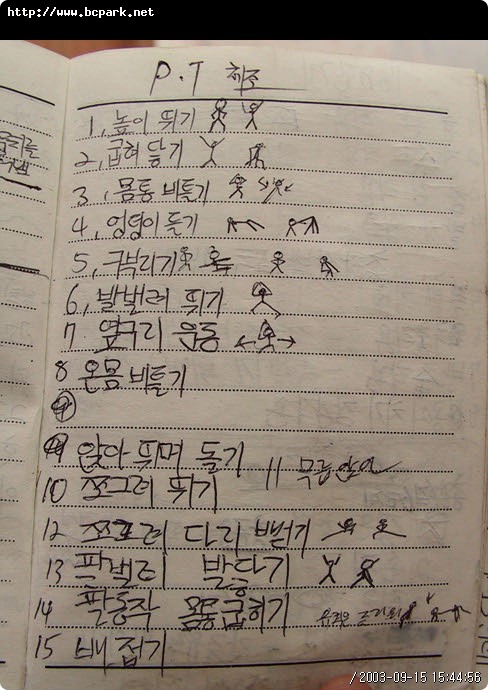 http://www.bcpark.net
P.T 체조
1, 높이 뛰기
2, 굽혀 닿기
3, 몸통 비틀기
4, 엉덩이 들기
5, 구부리기
6, 발벌려 뛰기
7 옆구리 운동
8 온몸 비틀기
9
9 앉아 뛰며 돌기
11 무릎
10 쪼그려 뛰기
12 쪼그려 다리 뻗기
13 팔벌려
14 팔동작 몸통굽히기
15 배 접기
/2003-09-15 15:44:56